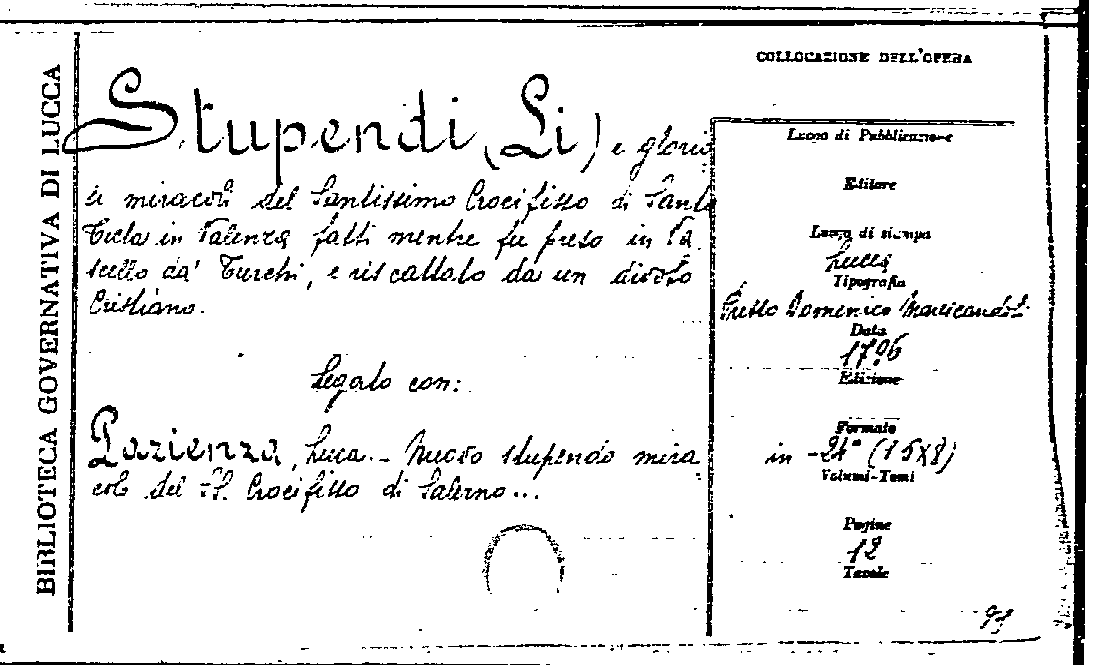 BIBLIOTECA GOVERNATIVA DI LUCCA
COLLOCAZIONE DELL'OPERA
Stupendi (Li) e glorio
si miracoli del Santissimo Crocifisso di Santa
Tecla in Valenza fatti mentre fu preso in Va
scello da' Turchi, e riscattato da un divoto
Cristiano.
Legato con:
Pazienza, Luca. - Nuovo stupendo mira
colo del SS. Crocifisso di Salerno...
Luogo di Pubblicazione
Editore
Luogo di stampa
Lucca
Tipografia
Presso Domenico Marescandoli
Data
1796
Edizione
Formato
in -24° (15x8)
Volumi-Tomi
Pagine
12
Tavole